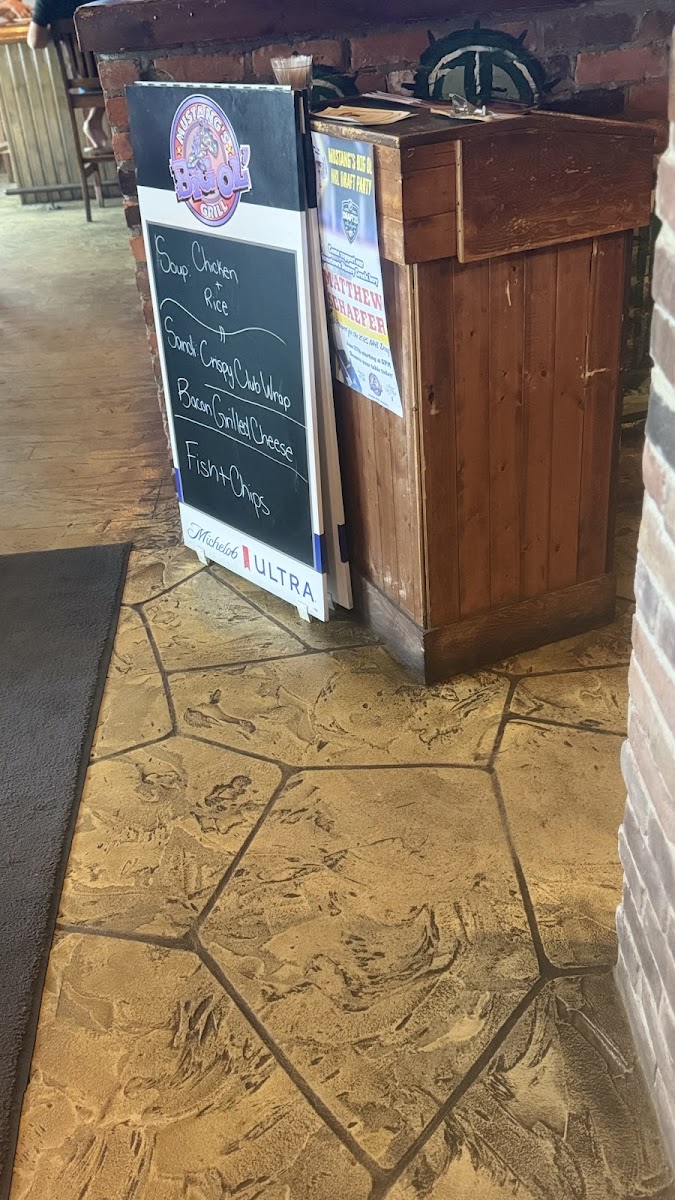 MUSTANG'S
BIG OL'
GRILL
Soup Chicken
+
Rice
Sand: Crispy Club Wrap
Bacon Grilled Cheese
Fish + Chips
Michelob ULTRA
MUSTANG'S BIG OL
NHL DRAFT PARTY
MATTHEW
SCHAEFER